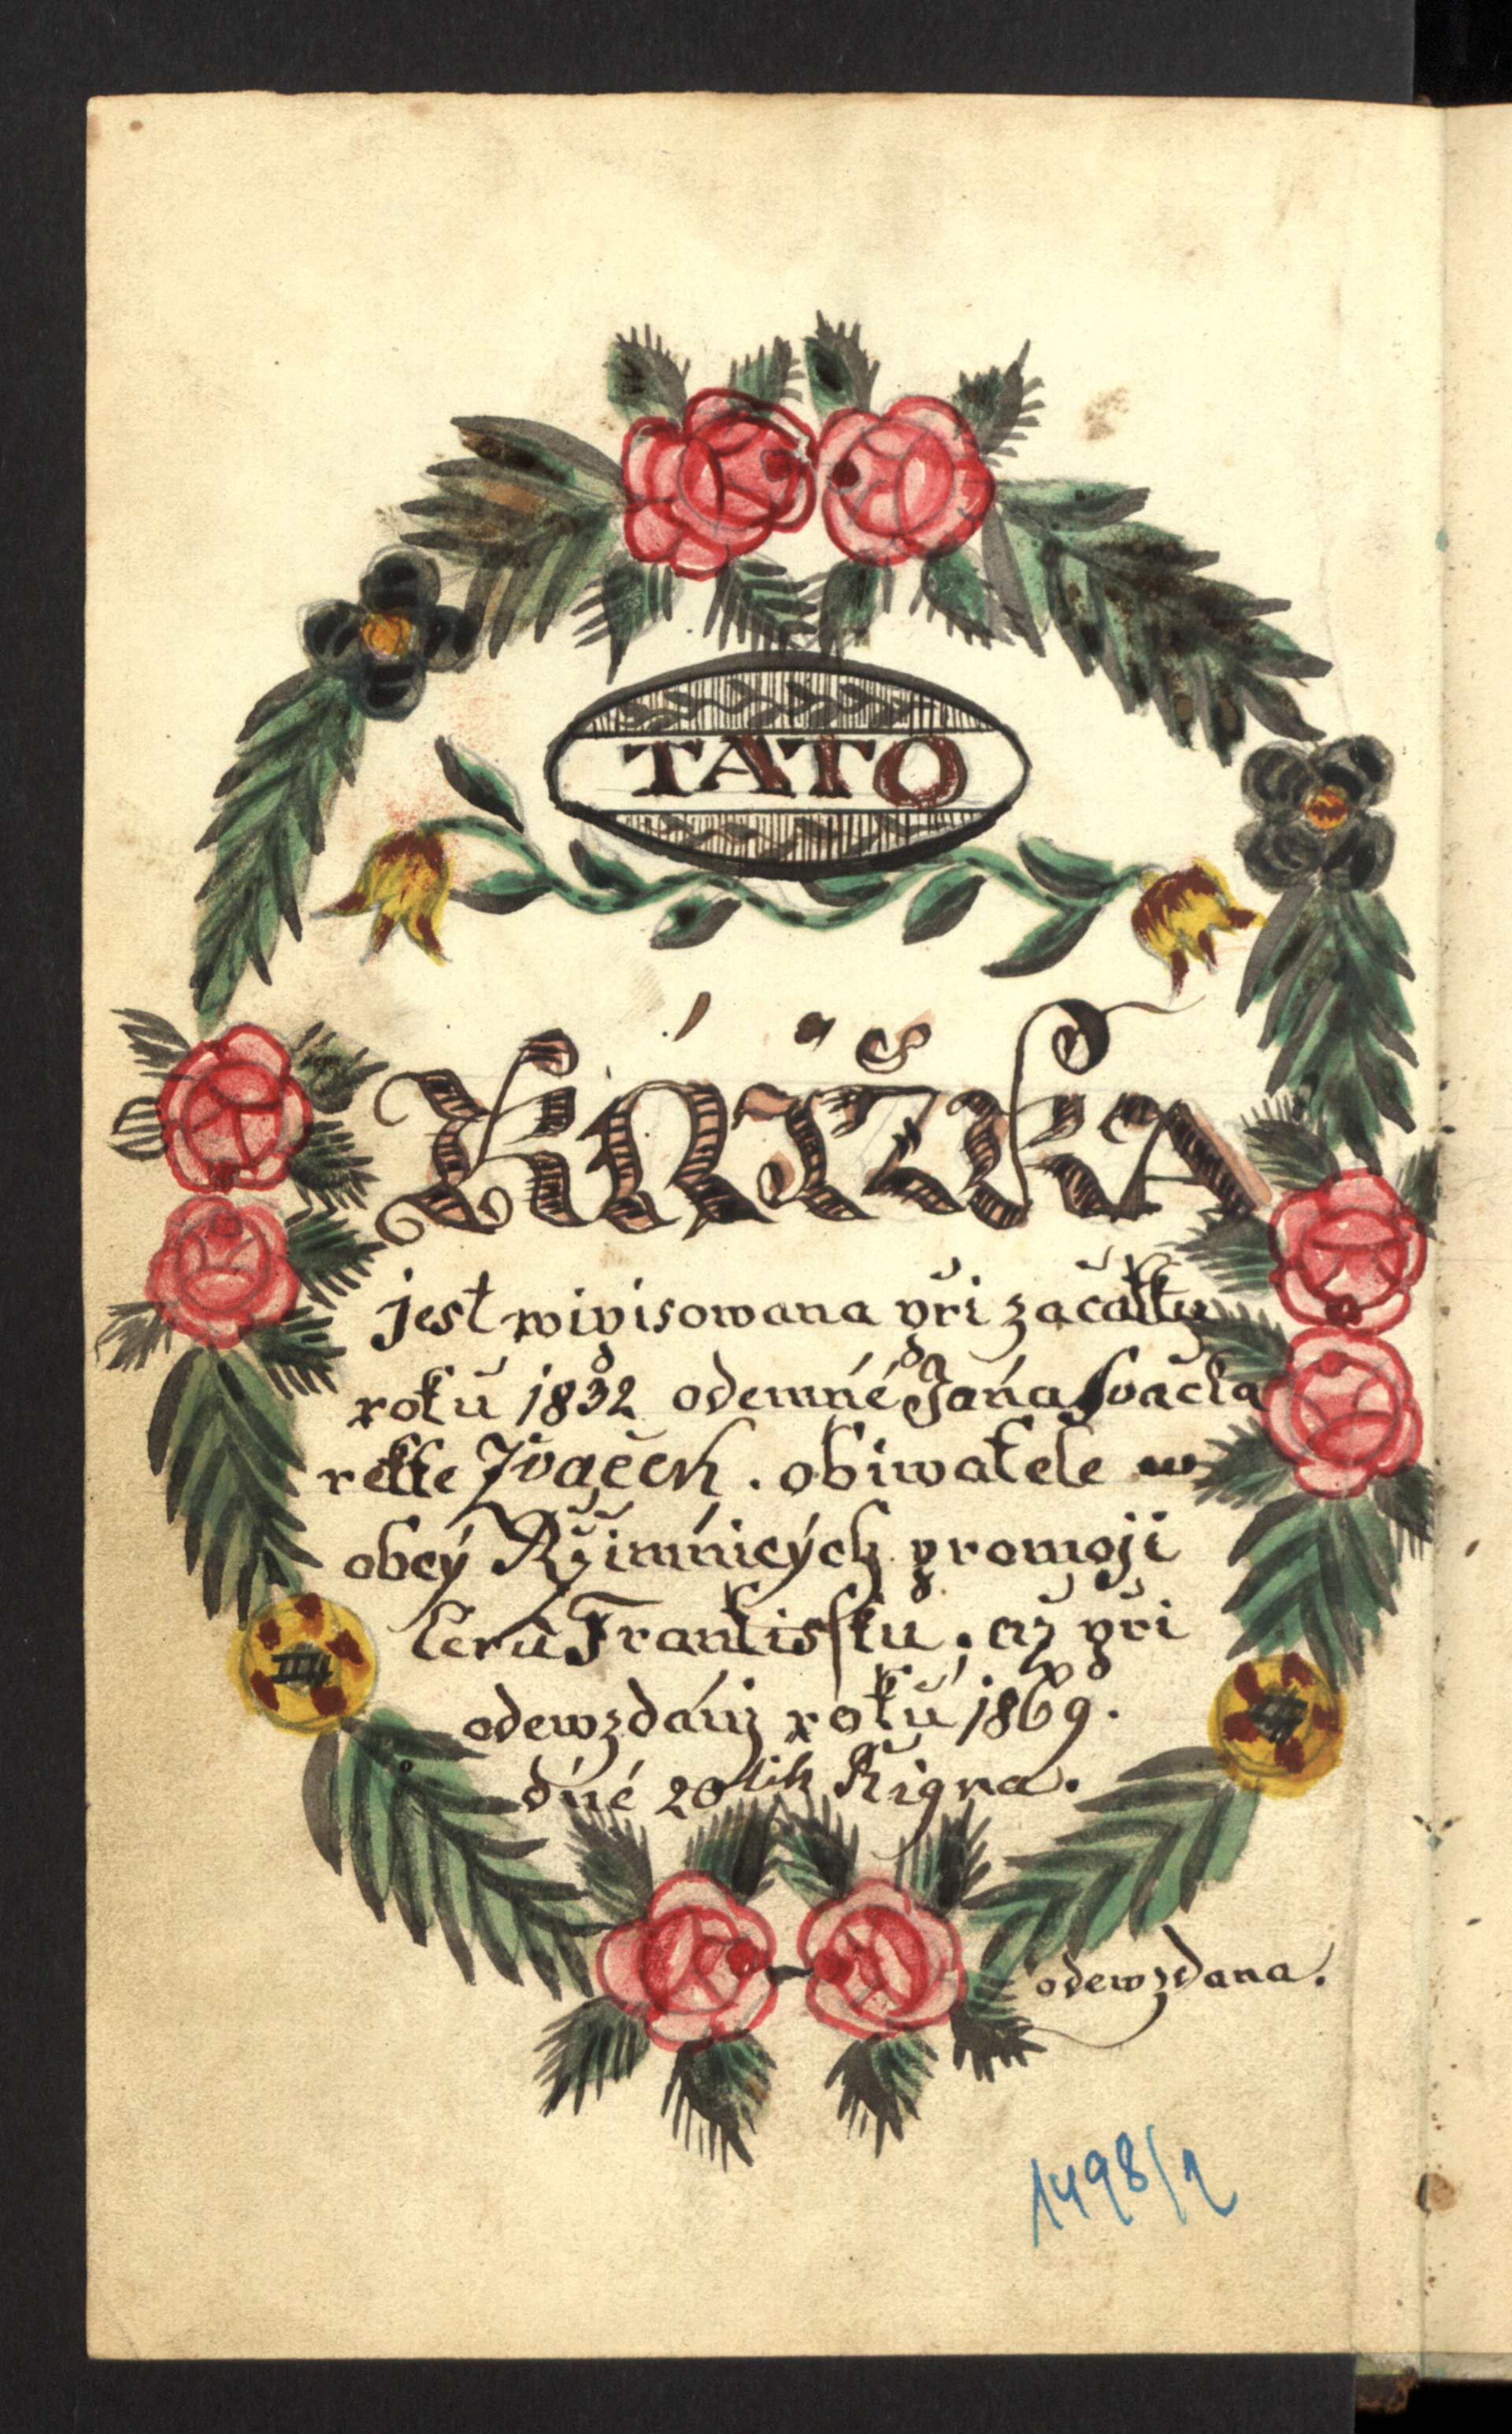 TATO
KŃÍŽKA
jest wipisowana při začatku
roků 1832 odemńé Jańa Svačka
rekte Jvaček. obiwatele w
obcý Ržimńicých promoji
Ceru Frantisſku, až při
odewzdáńj roků 1869.
dńé 20tih Řigna.
odewzdana.
1498/1